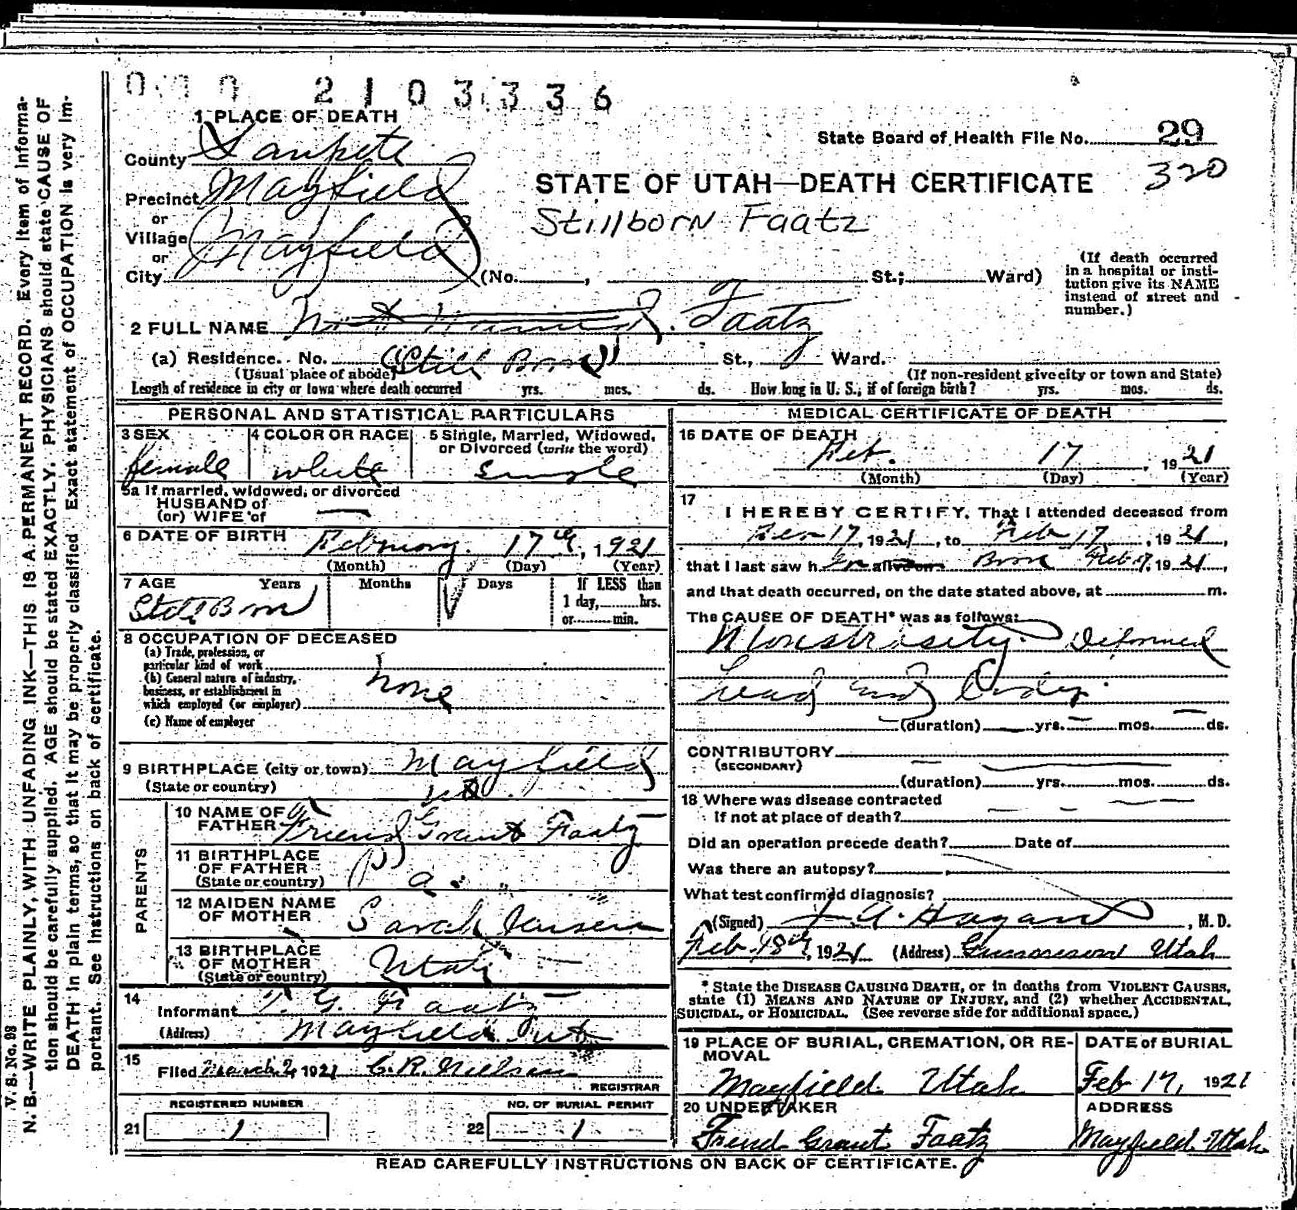 2103336
1 PLACE OF DEATH
State Board of Health File No. 29
County Sanpete
320
Precinct Mayfield
STATE OF UTAH—DEATH CERTIFICATE
or
Stillborn Faatz
Village Mayfield
or
City (No. , St.; Ward)
(If death occurred in a hospital or insti-
tution give its NAME
instead of street and
number.)
2 FULL NAME Faatz
(a) Residence. No. (Still Born) St., Ward.
(Usual place of abode) (If non-resident give city or town and State)
Length of residence in city or town where death occurred yrs. mos. ds. How long in U. S.; if of foreign birth? yrs. mos. ds.
PERSONAL AND STATISTICAL PARTICULARS
3 SEX 4 COLOR OR RACE 5 Single, Married, Widowed,
or Divorced (write the word)
female white single
5a If married, widowed, or divorced
HUSBAND of
(or) WIFE of —
6 DATE OF BIRTH February 17th, 1921
(Month) (Day) (Year)
7 AGE Years Months Days If LESS than
1 day, hrs.
or min.
Still Born
8 OCCUPATION OF DECEASED
(a) Trade, profession, or
particular kind of work
(b) General nature of industry,
business, or establishment in
which employed (or employer)
none
(c) Name of employer
9 BIRTHPLACE (city or town) Mayfield
(State or country) Ut
PARENTS
10 NAME OF
FATHER Friend Grant Faatz
11 BIRTHPLACE
OF FATHER
(State or country) Pa.
12 MAIDEN NAME
OF MOTHER Sarah Jensen
13 BIRTHPLACE
OF MOTHER
(State or country) Utah
14 Informant F. G. Faatz
(Address) Mayfield Ut
15 Filed March 2, 1921 C.R. Nielsen
REGISTRAR
REGISTERED NUMBER NO. OF BURIAL PERMIT
21 1 22 1
MEDICAL CERTIFICATE OF DEATH
16 DATE OF DEATH
Feb. 17, 1921
(Month) (Day) (Year)
17
I HEREBY CERTIFY, That I attended deceased from
Feb 17, 1921, to Feb 17, 1921,
that I last saw h alive on Born Feb 17, 1921,
and that death occurred, on the date stated above, at m.
The CAUSE OF DEATH* was as follows:
Monstrosity. Deformed
head and Body.
(duration) yrs. mos. ds.
CONTRIBUTORY
(SECONDARY)
(duration) yrs. mos. ds.
18 Where was disease contracted
If not at place of death?
Did an operation precede death? Date of
Was there an autopsy?
What test confirmed diagnosis?
(Signed) J A. Hagan, M. D.
Feb 18th, 1921 (Address) Gunnison Utah
* State the DISEASE CAUSING DEATH, or in deaths from VIOLENT CAUSES,
state (1) MEANS AND NATURE OF INJURY, and (2) whether ACCIDENTAL,
SUICIDAL, or HOMICIDAL. (See reverse side for additional space.)
19 PLACE OF BURIAL, CREMATION, OR RE-
MOVAL
DATE of BURIAL
Mayfield Utah Feb 17, 1921
20 UNDERTAKER ADDRESS
Friend Grant Faatz Mayfield Utah
READ CAREFULLY INSTRUCTIONS ON BACK OF CERTIFICATE.
V. S. No. 98
N. B.—WRITE PLAINLY, WITH UNFADING INK—THIS IS A PERMANENT RECORD. Every item of informa-
tion should be carefully supplied. AGE should be stated EXACTLY. PHYSICIANS should state CAUSE OF
DEATH in plain terms, so that it may be properly classified. Exact statement of OCCUPATION is very im-
portant. See instructions on back of certificate.